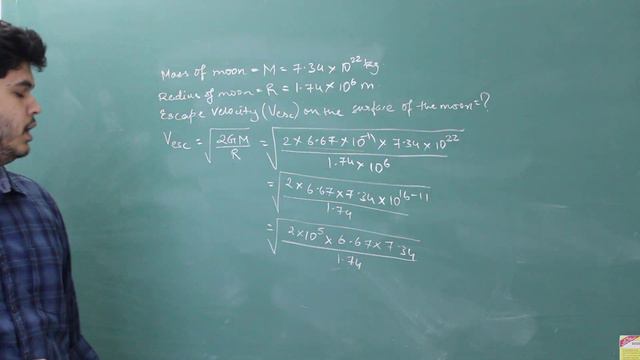 Mass of moon = M = 7.34 × 10²² kg
Radius of moon = R = 1.74 × 10⁶ m
Escape Velocity (Vesc) on the surface of the moon = ?
Vesc = √(2GM/R) = √((2 × 6.67 × 10⁻¹¹ × 7.34 × 10²²)/(1.74 × 10⁶))
= √((2 × 6.67 × 7.34 × 10¹⁶⁻¹¹)/1.74)
= √((2 × 10⁵ × 6.67 × 7.34)/1.74)